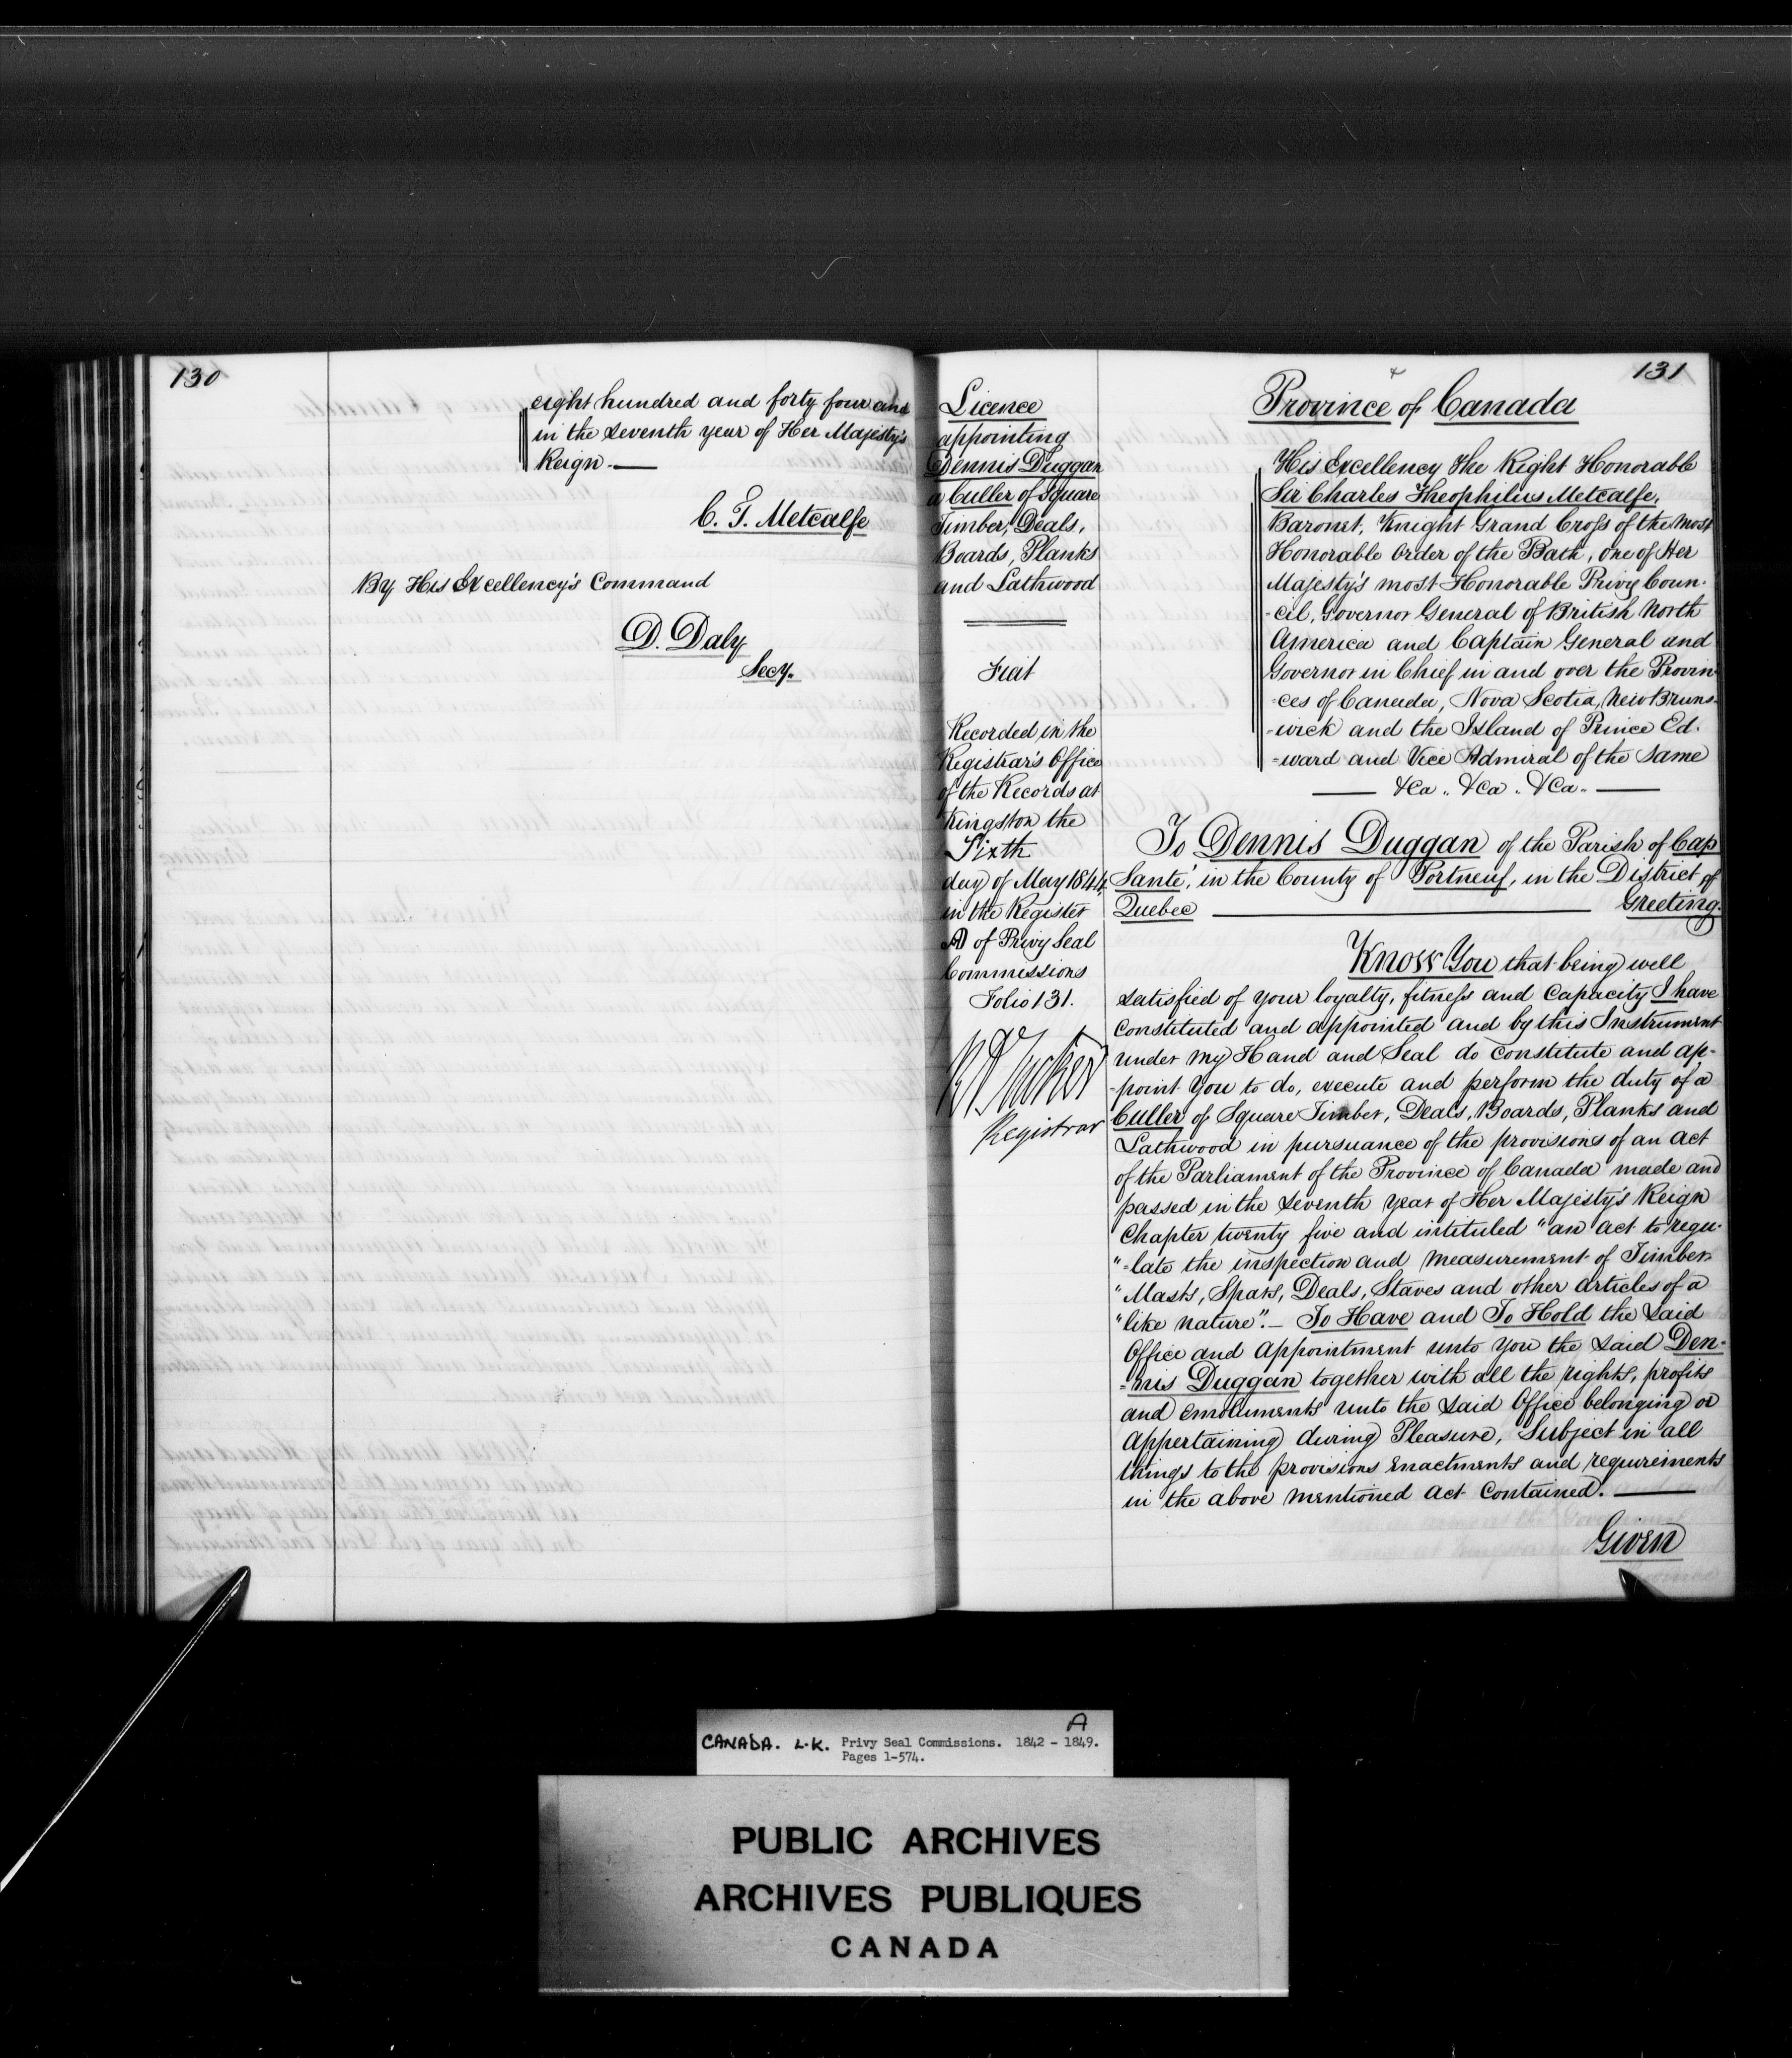 130
eight hundred and forty four and
in the Seventh year of Her Majesty's
Reign.
C. T. Metcalfe
By His Excellency's Command
D. Daly
Secy.
131
Licence
appointing
Dennis Duggan
a Culler of Square
Timber, Deals,
Boards, Planks
and Lathwood
Fiat
Recorded in the
Registrar's Office
of the Records at
Kingston the
Sixth
day of May 1844
in the Register
A of Privy Seal
Commissions
Folio 131.
R A Tucker
Registrar
Province of Canada
His Excellency The Right Honorable
Sir Charles Theophilus Metcalfe,
Baronet, Knight Grand Cross of the most
Honorable Order of the Bath, one of Her
Majesty's most Honorable Privy Coun-
-cil, Governor General of British North
America and Captain General and
Governor in Chief in and over the Provin-
-ces of Canada, Nova Scotia, New Bruns-
-wick and the Island of Prince Ed-
-ward and Vice Admiral of the same
&ca. &ca. &ca.
To Dennis Duggan of the Parish of Cap
Santé, in the County of Portneuf, in the District of
Quebec Greeting.
Know You that being well
satisfied of your loyalty, fitness and Capacity I have
constituted and appointed and by this Instrument
under my Hand and Seal do constitute and ap-
-point you to do, execute and perform the duty of a
Culler of Square Timber, Deals, Boards, Planks and
Lathwood in pursuance of the provisions of an act
of the Parliament of the Province of Canada made and
passed in the Seventh year of Her Majesty's Reign
Chapter twenty five and intituled "an act to regu-
"-late the inspection and measurement of Timber
"Masts, Spars, Deals, Staves and other articles of a
"like nature".— To Have and To Hold the said
Office and appointment unto you the said Den-
-nis Duggan together with all the rights, profits
and emoluments unto the said Office belonging or
appertaining during Pleasure, Subject in all
things to the provisions enactments and requirements
in the above mentioned act contained.
Given
A
CANADA. L.K. Privy Seal Commissions. 1842 - 1849.
Pages 1-574.
PUBLIC ARCHIVES
ARCHIVES PUBLIQUES
CANADA